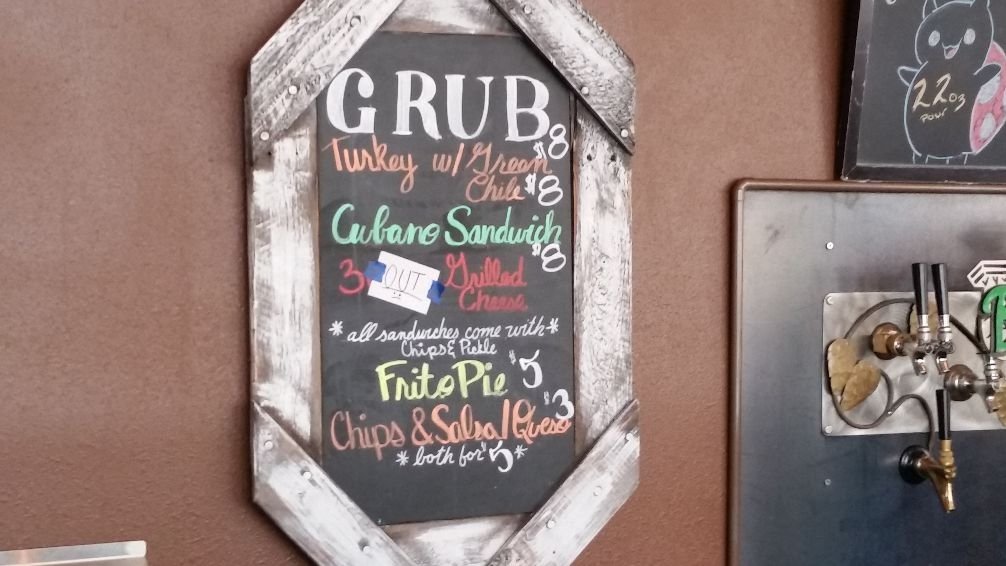 GRUB
$8
Turkey w/ Green
Chile $8
Cubano Sandwich
$8
3 OUT Grilled
Cheese
*all sandwiches come with*
Chips & Pickle
Frito Pie $5
$3
Chips & Salsa/Queso
*both for $5*
22oz
Pour